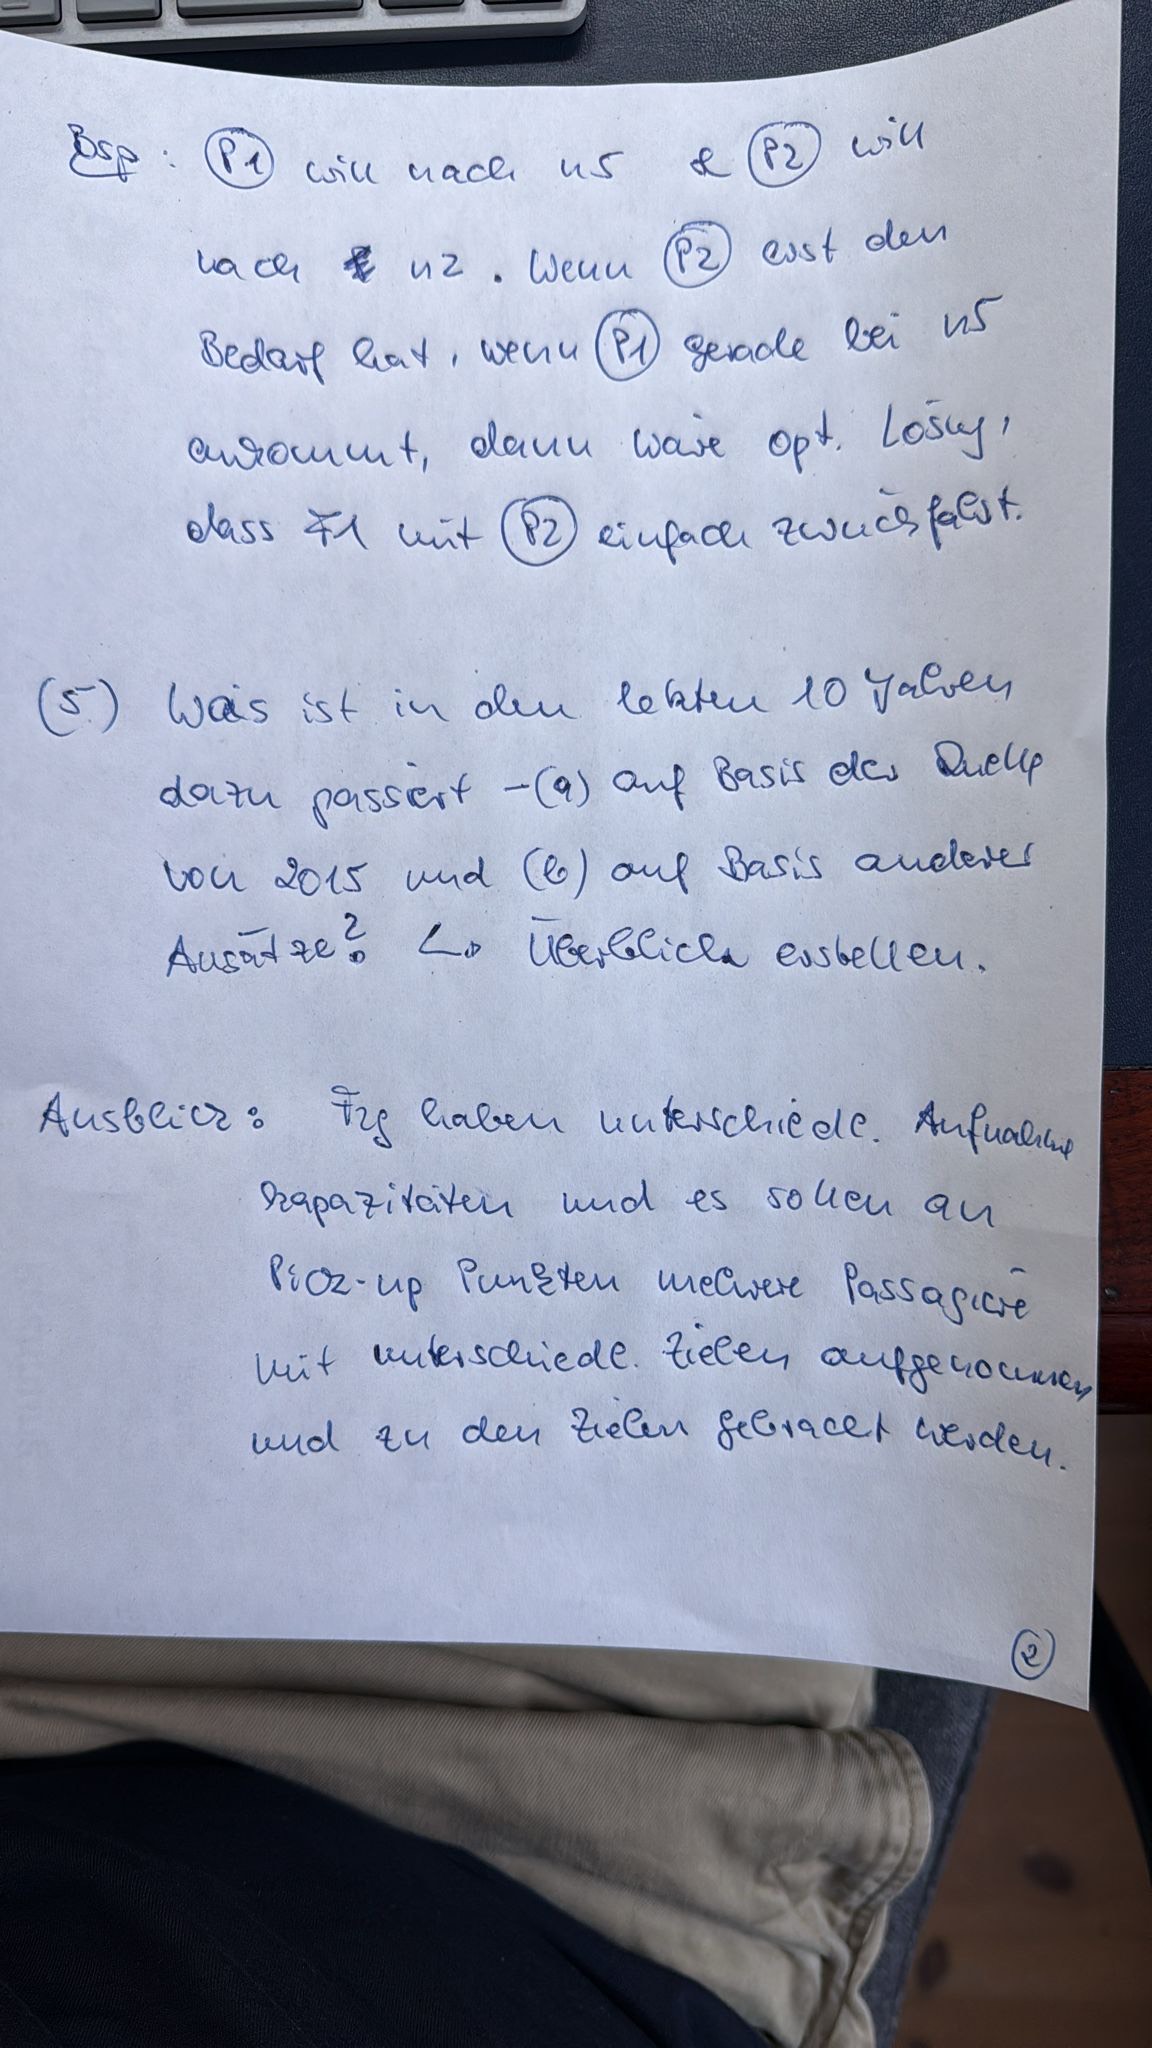 Bsp: P1 will nach n5 & P2 will
nach n2. Wenn P2 erst den
Bedarf hat, wenn P1 gerade bei n5
ankommt, dann wäre opt. Lösung,
dass F1 mit P2 einfach zurückfährt.
(5.) Was ist in den letzten 10 Jahren
dazu passiert - (a) auf Basis der Quelle
von 2015 und (b) auf Basis anderer
Ansätze? ↳ Überblick erstellen.
Ausblick: Fzg haben unterschiedl. Aufnahme
kapazitäten und es sollen an
Pick-up Punkten mehrere Passagiere
mit unterschiedl. Zielen aufgenommen
und zu den Zielen gebracht werden.
2